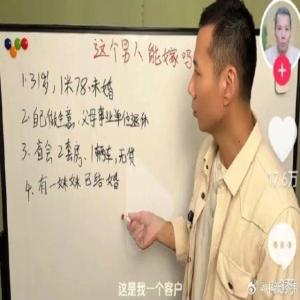 这个男人能嫁吗
1.31岁,1米78.未婚
2.自己做生意,父母事业单位退休
3.省会2套房、1辆车,无贷
4.有一妹妹已结婚
17.6万
这是我一个客户